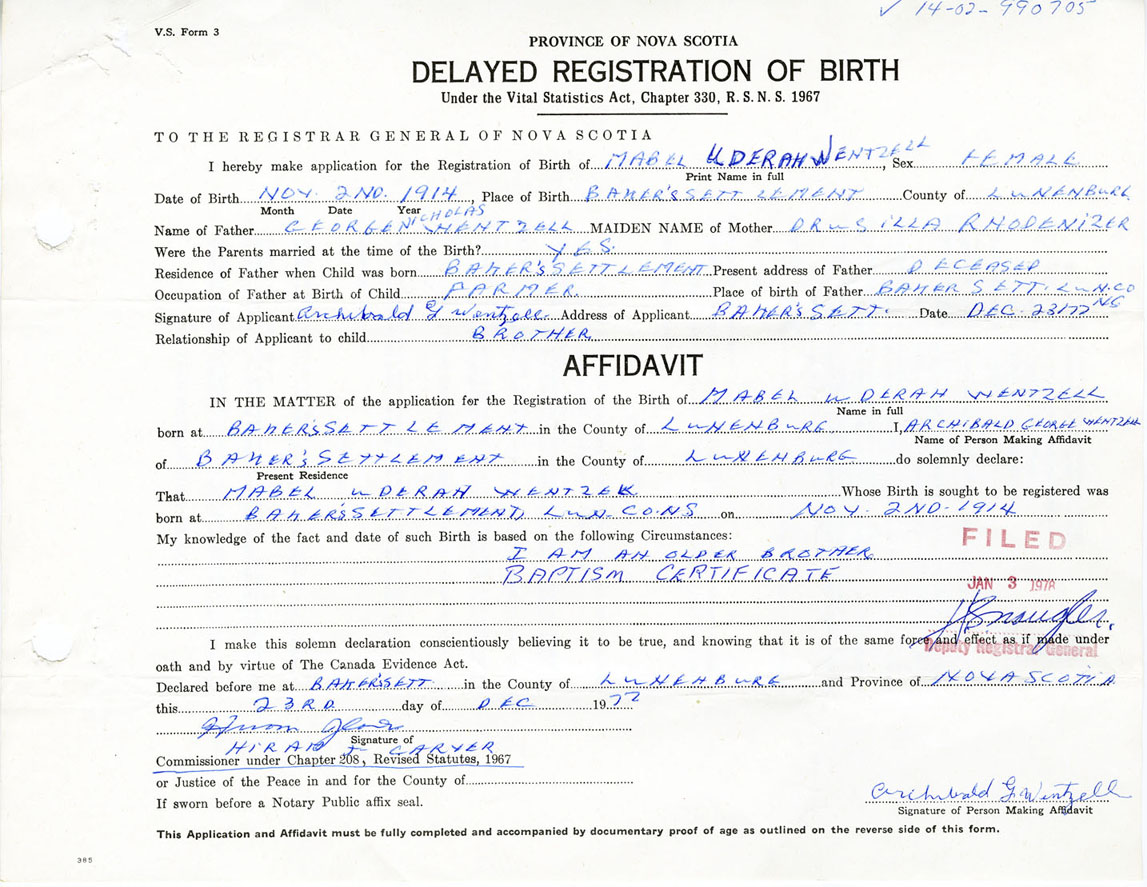 ✓ 14-02-990705
V.S. Form 3
PROVINCE OF NOVA SCOTIA
DELAYED REGISTRATION OF BIRTH
Under the Vital Statistics Act, Chapter 330, R. S. N. S. 1967
TO THE REGISTRAR GENERAL OF NOVA SCOTIA
I hereby make application for the Registration of Birth of MABEL UDERAH WENTZELL, Sex FEMALE
Print Name in full
Date of Birth NOV. 2ND. 1914, Place of Birth BAKER'S SETTLEMENT County of LUNENBURG
Month Date Year
Name of Father GEORGE NICHOLAS WENTZELL MAIDEN NAME of Mother DRUSILLA RHODENIZER
Were the Parents married at the time of the Birth? YES.
Residence of Father when Child was born BAKER'S SETTLEMENT Present address of Father DECEASED
Occupation of Father at Birth of Child FARMER. Place of birth of Father BAKER SETT. LUN. CO NS
Signature of Applicant Archibald G Wentzell Address of Applicant BAKER'S SETT. Date DEC. 23/77
Relationship of Applicant to child BROTHER
AFFIDAVIT
IN THE MATTER of the application for the Registration of the Birth of MABEL UDERAH WENTZELL
Name in full
born at BAKER'S SETTLEMENT in the County of LUNENBURG I, ARCHIBALD GEORGE WENTZELL
Name of Person Making Affidavit
of BAKER'S SETTLEMENT in the County of LUNENBURG do solemnly declare:
Present Residence
That MABEL UDERAH WENTZEL Whose Birth is sought to be registered was
born at BAKER'S SETTLEMENT, LUN. CO. NS on NOV. 2ND. 1914
My knowledge of the fact and date of such Birth is based on the following Circumstances:
FILED
I AM AN OLDER BROTHER
BAPTISM CERTIFICATE
JAN 3 1978
I make this solemn declaration conscientiously believing it to be true, and knowing that it is of the same force and effect as if made under
Deputy Registrar General
oath and by virtue of The Canada Evidence Act.
Declared before me at BAKER'S SETT. in the County of LUNENBURG and Province of NOVA SCOTIA
this 23RD. day of DEC 1977
Signature of
HIRAM I CARVER
Commissioner under Chapter 208, Revised Statutes, 1967
or Justice of the Peace in and for the County of
If sworn before a Notary Public affix seal.
Archibald G. Wentzell
Signature of Person Making Affidavit
This Application and Affidavit must be fully completed and accompanied by documentary proof of age as outlined on the reverse side of this form.
385